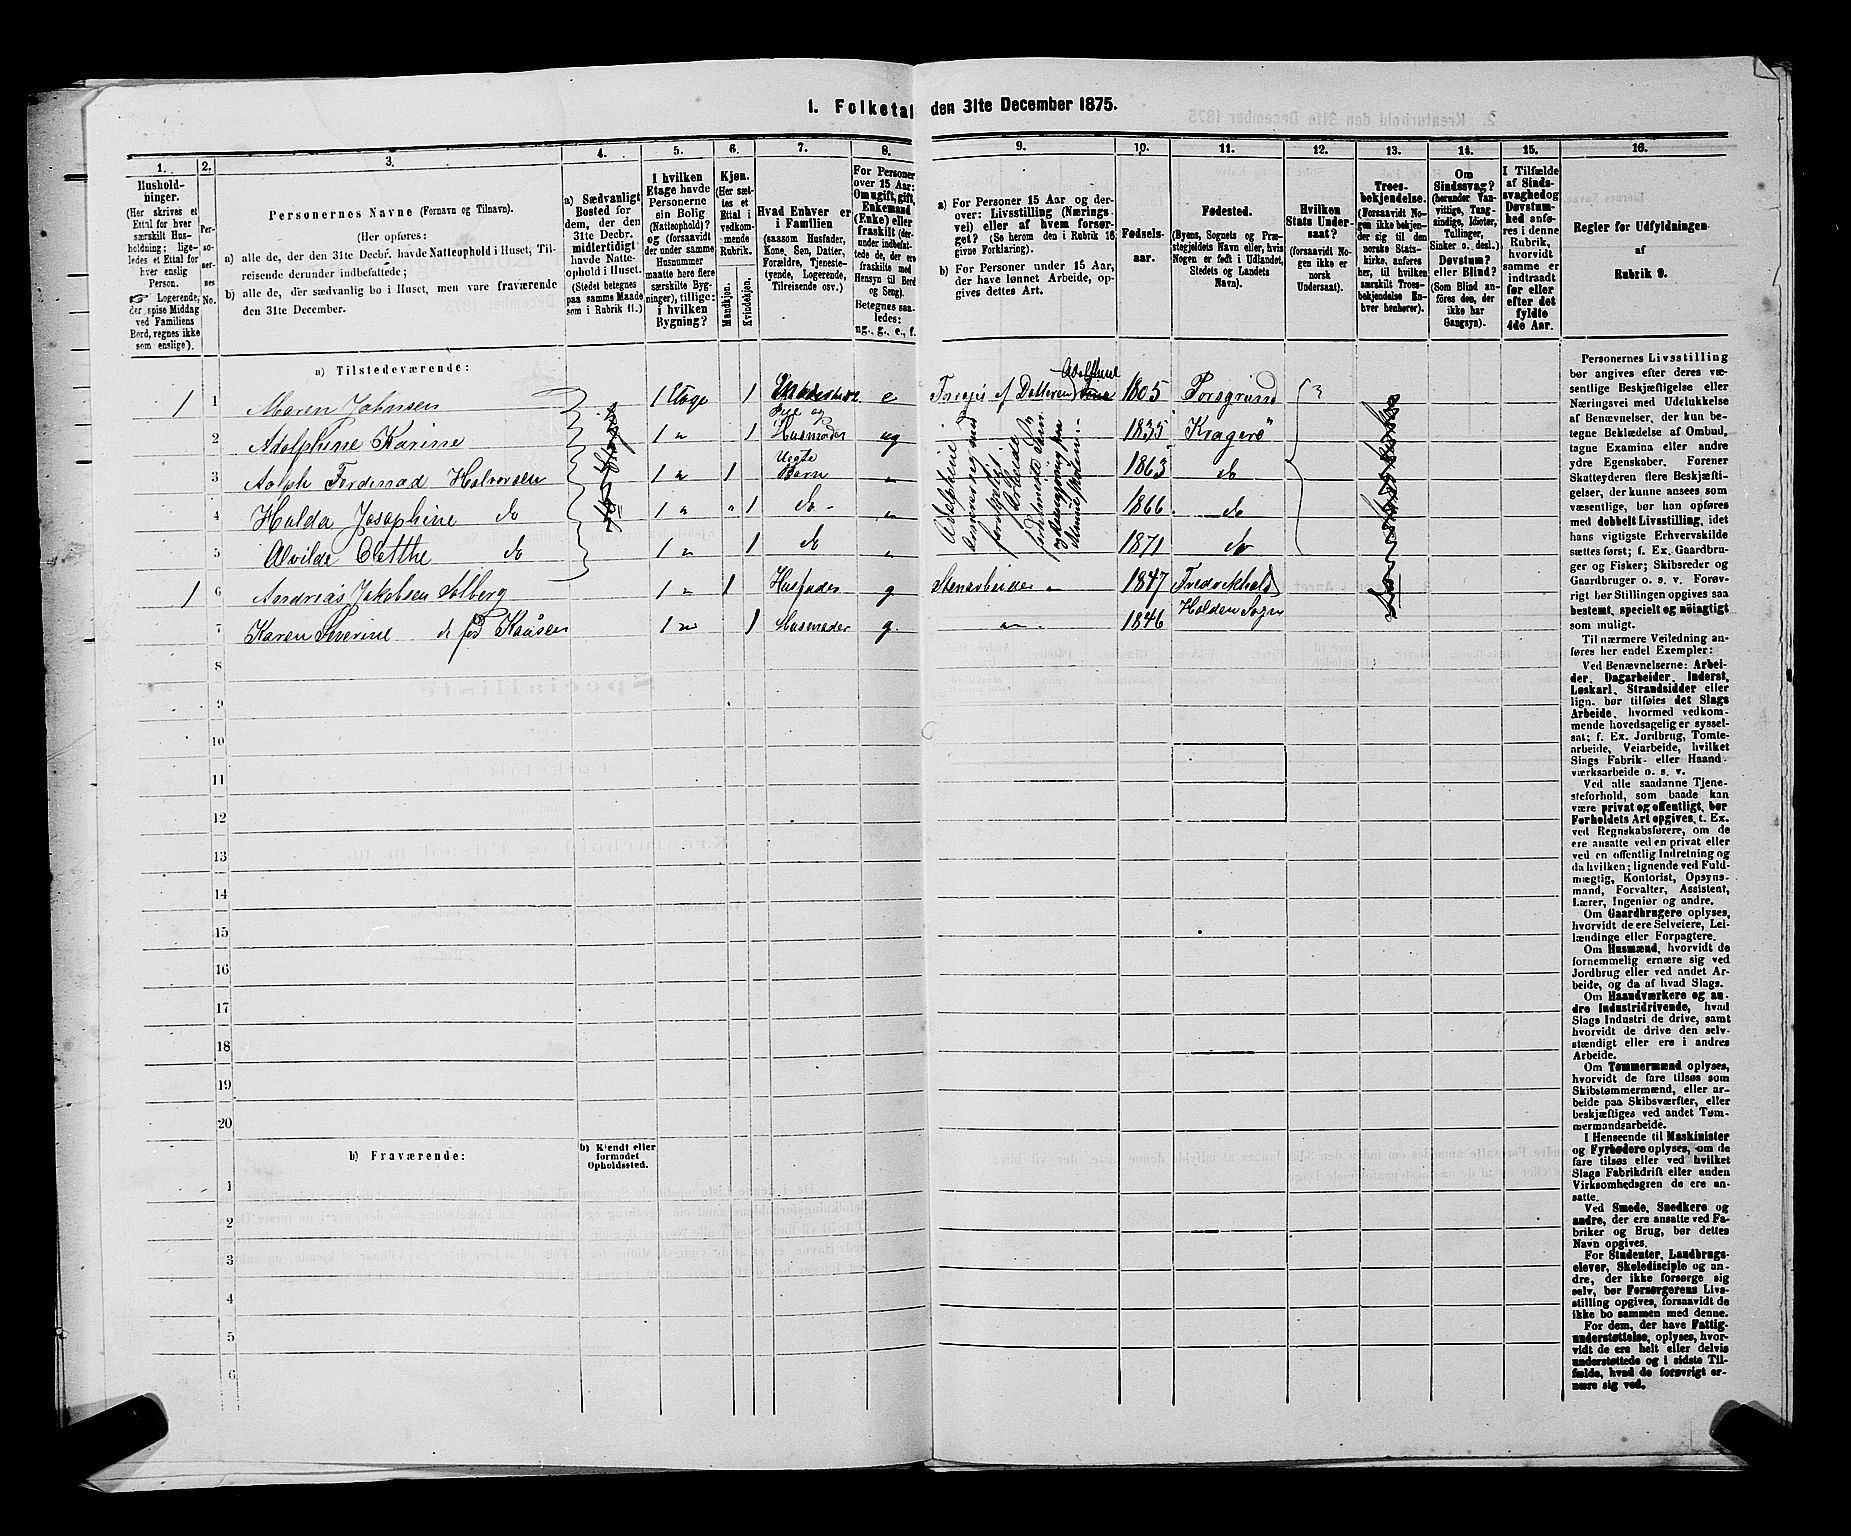 1. Folketal den 31te December 1875.
1.
2.
3.
4.
5.
6.
7.
8.
9.
10.
11.
12.
13.
14.
15.
16.
Hushold-
ninger.
(Her skrives et
Ettal for hver
særskilt Hus-
holdning; lige-
ledes et Ettal for
hver enslig
Person.
☞ Logerende,
der spise Middag
ved Familiens
Bord, regnes ikke
som enslige).
Per-
so-
ner-
nes
No.
Personernes Navne (Fornavn og Tilnavn).
(Her opføres:
a) alle de, der den 31te Decbr. havde Natteophold i Huset, Til-
reisende derunder indbefattede;
b) alle de, der sædvanlig bo i Huset, men vare fraværende
den 31te December.
a) Sædvanligt
Bosted for
dem, der den
31te Decbr.
midlertidigt
havde Natte-
ophold i Huset.
(Stedet betegnes
paa samme Maade
som i Rubrik 11.)
I hvilken
Etage havde
Personerne
sin Bolig
(Natteophold)?
og (forsaavidt
der under samme
Husnummer
maatte here flere
særskilte Byg-
ninger), tillige:
i hvilken
Bygning?
Kjøn.
(Her sæt-
tes et
Ettal i
vedkom-
mende
Rubrik.
Mandkjøn.
Kvindekjøn.
Hvad Enhver er
i Familien
(saasom Husfader,
Kone, Søn, Datter,
Forældre, Tjeneste-
tyende, Logerende,
Tilreisende osv.)
For Personer
over 15 Aar:
Om ugift, gift,
Enkemand
(Enke) eller
fraskilt (der-
under indbefat-
tede de, der ere
fraskilte med
Hensyn til Bord
og Seng).
Betegnes saa-
ledes:
ug., g., e., f.
a) For Personer 15 Aar og der-
over: Livsstilling (Nærings-
vei) eller af hvem forsør-
get? (Se herom den i Rubrik 16
givne Forklaring).
b) For Personer under 15 Aar,
der have lønnet Arbeide, op-
gives dettes Art.
Fødsels-
aar.
Fødested.
(Byens, Sognets og Præ-
stegjeldets Navn eller, hvis
Nogen er født i Udlandet,
Stedets og Landets
Navn).
Hvilken
Stats Under-
saat?
(forsaavidt No-
gen ikke er
norsk
Undersaat).
Troes-
bekjendelse.
(Forsaavidt No-
gen ikke bekjen-
der sig til den
norske Stats-
kirke, anføres
her, til hvilken
særskilt Troes-
bekjendelse En-
hver henhører).
Om
Sindssvag?
(herunder Van-
vittige, Tung-
sindige, Idioter,
Tullinger,
Sinker o. desl.)
Døvstum?
eller Blind?
(Som Blind an-
føres den, der
ikke har
Gangsyn).
I Tilfælde
af Sinds-
svaghedog
Døvstum-
hed anfø-
res i denne
Rubrik,
hvorvidt
samme er
indtraadt
før eller
efter det
fyldte
4de Aar.
Regler for Udfyldningen
af
Rubrik 9.
a) Tilstedeværende:
1 1 Maren Johnsen 1 Etage 1 e af Datteren Adolfine 1805 Porsgrund
2 Adolphine Karine 1 " 1 Husmoder ug 1835 Kragerø
3 Adolph Ferdinad Halvorsen 1 " 1 Uegte Barn " 1863 do
4 Hulda Josephine do 1 " " 1 do " 1866 do
5 Alvilde do 1 " 1 do " 1871 do
1 6 Andreas Jakobsen Solberg 1 " 1 Husfader g Stenarbeider 1847 Fredrikhald
7 Karen Severine do fød 1 " 1 Husmoder g " 1846 Holden Sogn
8
9
10
11
12
13
14
15
16
17
18
19
20
b) Fraværende:
b) Kjendt eller
formodet
Opholdssted.
1
2
3
4
5
6
Personernes Livsstilling
bør angives efter deres væ-
sentlige Beskjæftigelse eller
Næringsvei med Udelukkelse
af Benævnelser, der kun be-
tegne Beklædelse af Ombud,
tagne Examina eller andre
ydre Egenskaber. Forener
Skatteyderen flere Beskjæfti-
gelser, der kunne ansees som
væsentlige, bør han opføres
med dobbelt Livsstilling, idet
hans vigtigste Erhvervskilde
sættes først; f. Ex. Gaardbru-
ger og Fisker; Skibsreder og
Gaardbruger o. s. v. Forøv-
rigt bør Stillingen opgives saa
bestemt, specielt og nöiagtigt
som muligt.
Til nærmere Veiledning an-
føres her endel Exempler:
Ved Benævnelserne: Arbei-
der, Dagarbeider, Inderst,
Løskarl, Strandsidder eller
lign. bør tilføies det Slags
Arbeide, hvormed vedkom-
mende hovedsagelig er syssel-
sat; f. Ex. Jordbrug, Tomte-
arbeide, Veiarbeide, hvilket
Slags Fabrik- eller Haand-
værksarbeide o. s. v.
Ved alle saadanne Tjene-
steforhold, som baade kan
være privat og offentligt, bør
Forholdets Art opgives, t. Ex.
ved Regnskabsførere, om de
ere ansatte ved en privat eller
ved en offentlig Indretning og
da hvilken; lignende ved Fuld-
mægtig, Kontorist, Opsyns-
mand, Forvalter, Assistent,
Lærer, Ingeniør og andre.
Om Gaardbrugere oplyses,
hvorvidt de ere Selveiere, Lei-
lændinge eller Forpagtere.
Om Husmænd, hvorvidt de
fornemmelig ernære sig ved
Jordbrug eller ved andet Ar-
beide, og da af hvad Slags.
Om Haandværkere og an-
dre Industridrivende, hvad
Slags Industri de drive, samt
hvorvidt de drive den selv-
stændigt eller ere i andres
Arbeide.
Om Tømmermænd oplyses,
hvorvidt de fare tilsøs som
Skibstømmermænd, eller ar-
beide paa Skibsværfter, eller
beskjæftiges ved andet Tøm-
mermandsarbeide.
I Henseende til Maskinister
og Fyrbødere oplyses, om de
fare tilsøs eller ved hvilket
Slags Fabrikdrift eller anden
Virksomhedsgren de ere an-
satte.
Ved Smede, Snedkere og
andre, der ere ansatte ved Fa-
briker og Brug, bør dettes
Navn opgives.
For Studenter, Landbrugs-
elever, Skoledisciple og an-
dre, der ikke forsørge sig
selv, bør Forsørgerens Livs-
stilling opgives, forsaavidt de
ikke bo sammen med denne.
For dem, der have Fattig-
understøttelse, oplyses, hvor-
vidt de ere helt eller delvis
understøttede og i sidste Til-
fælde, hvad de forøvrigt er-
nære sig ved.